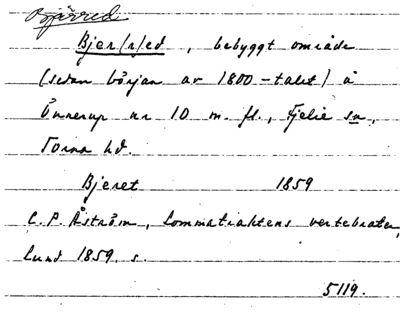 Bjärred
Bjer/r/ed, bebyggt område
(sedan början av 1800-talet) å
Önnerup nr 10 m. fl., Fjelie sn,
Torna hd.
Bjeret 1859
C. P. Åström, Lommatraktens vertebrater,
Lund 1859. s.
5119.